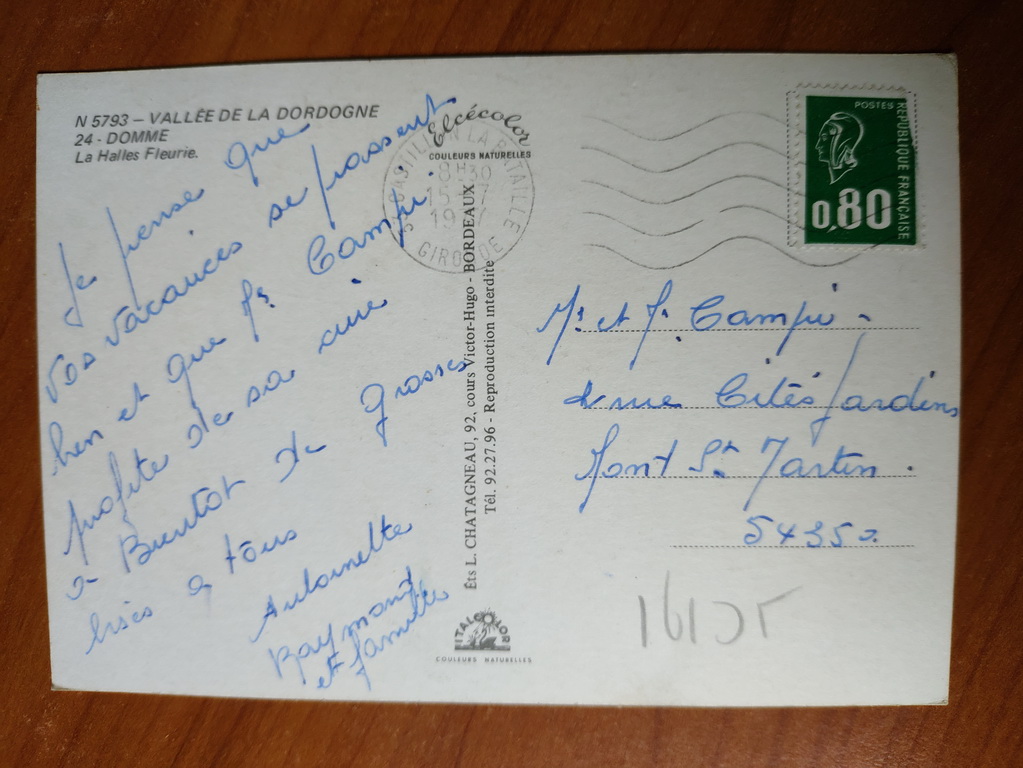 N 5793 – VALLÉE DE LA DORDOGNE
24 - DOMME
La Halles Fleurie.
Elcécolor
COULEURS NATURELLES
Je pense que
vos vacances se passent
bien et que Mr Campi
profite de sa
a Bientot de grosses
bises a tous
Antoinette
Raymond
et famille
CASTILLON LA BATAILLE
8H30
15-7
GIRONDE
Éts L. CHATAGNEAU, 92, cours Victor-Hugo - BORDEAUX
Tél. 92.27.96 - Reproduction interdite
ITALCOLOR
COULEURS NATURELLES
POSTES
RÉPUBLIQUE FRANÇAISE
0,80
Mr et Me Campi
rue Cités Jardins
Mont St Martin.
54350